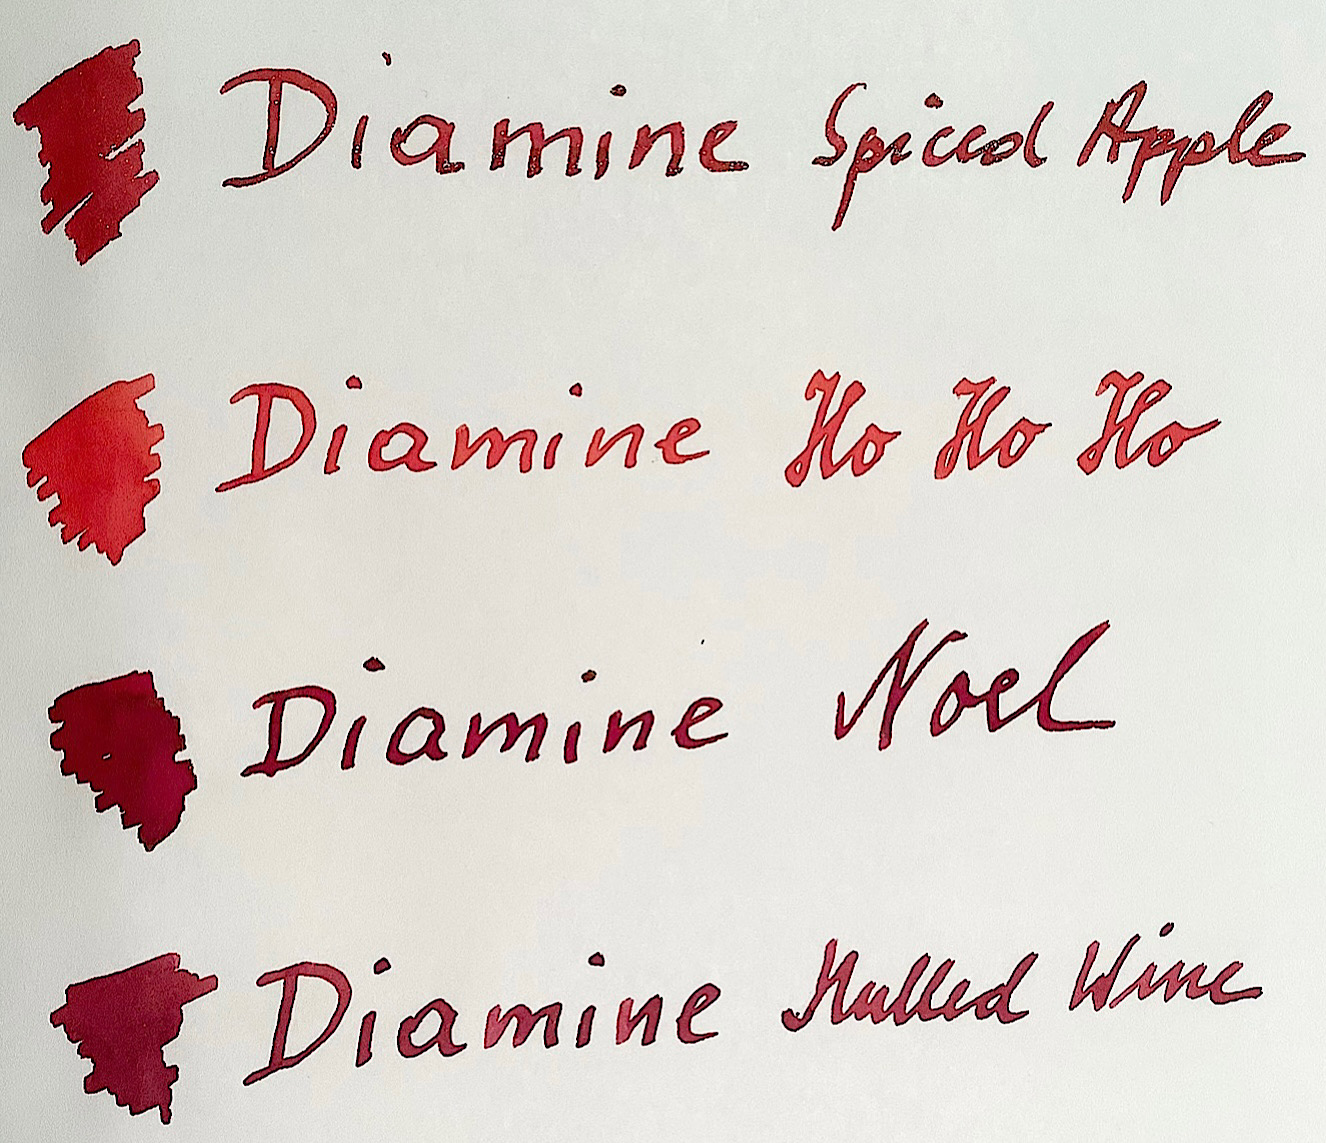 Diamine Spiced Apple
Diamine Ho Ho Ho
Diamine Noel
Diamine Mulled Wine